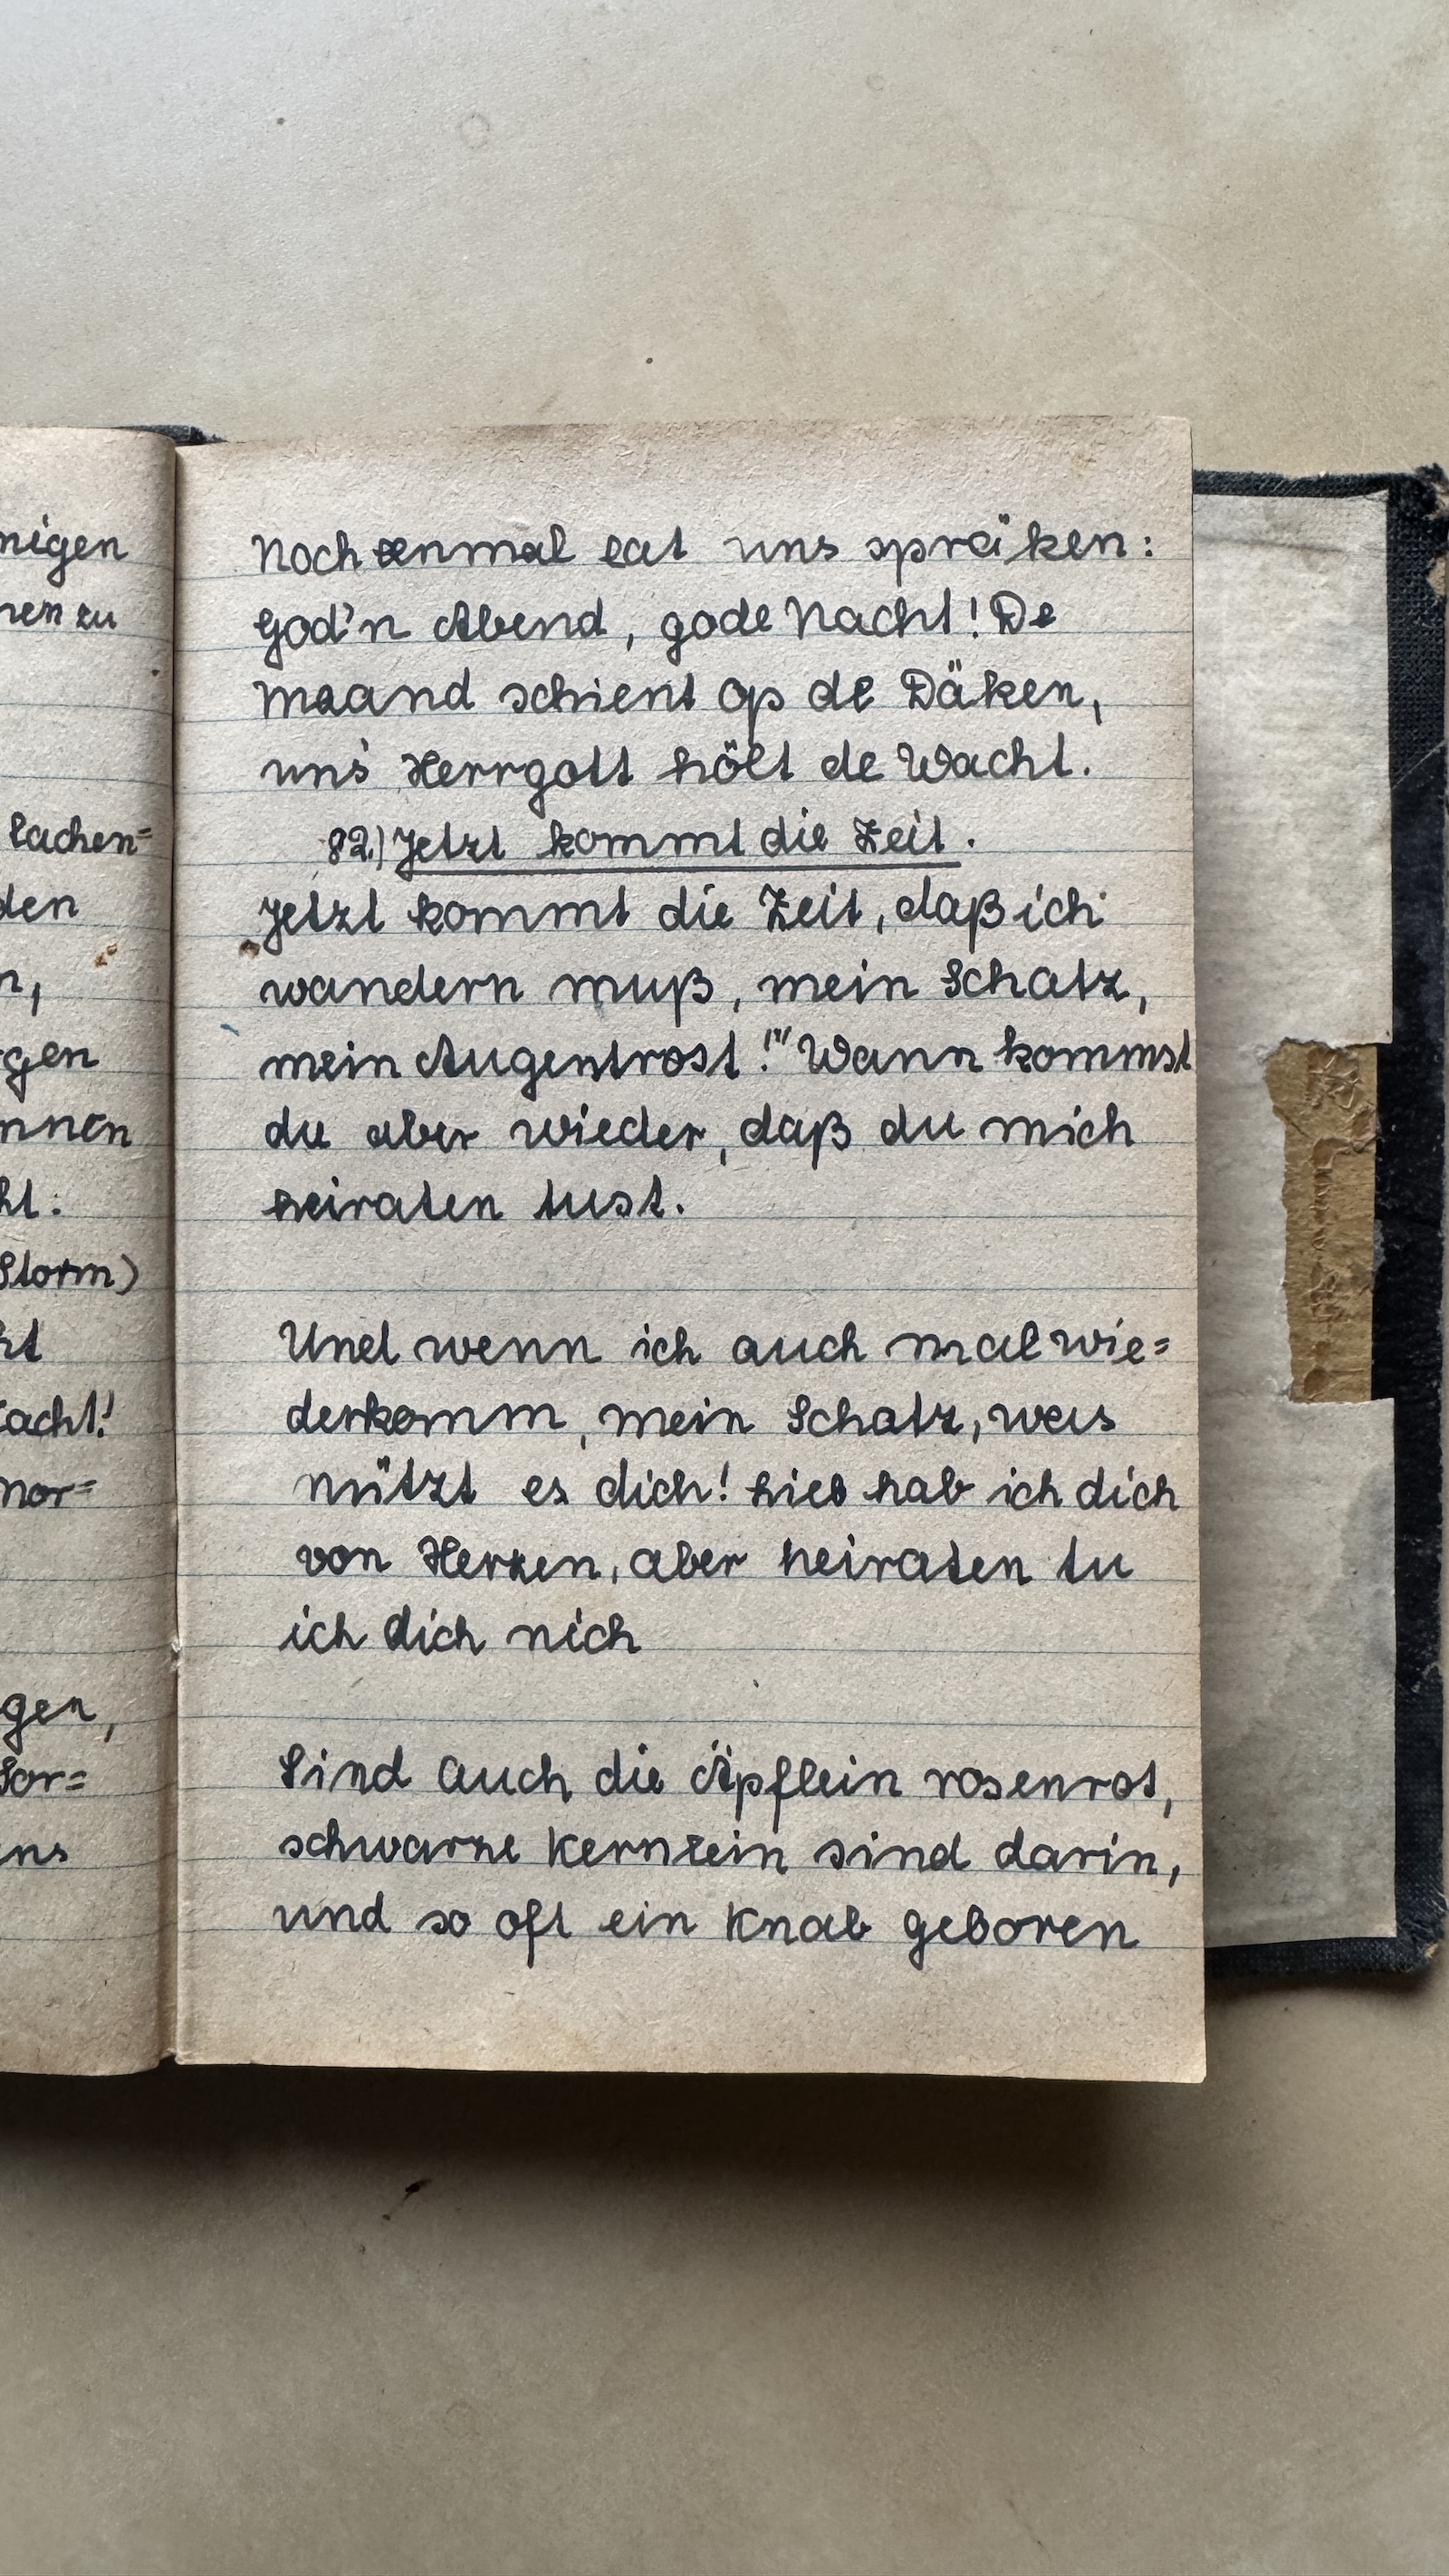 nigen
nen zu
lachen=
den
n,
gen
nnen
ht:
Storm)
ht
acht!
nor=
gen,
Sor=
ens
Noch eenmal lat uns spräken:
God'n Abend, gode Nacht! De
Maand schient op de Däken,
uns' Herrgott hölt de Wacht.
82.) Jetzt kommt die Zeit.
Jetzt kommt die Zeit, daß ich
wandern muß, mein Schatz,
mein Augentrost!" Wann kommst
du aber wieder, daß du mich
heiraten tust.
Und wenn ich auch mal wie=
derkomm, mein Schatz, was
nützt es dich! lieb hab ich dich
von Herzen, aber heiraten tu
ich dich nich
Sind auch die Äpflein rosenrot,
schwarze Kernlein sind darin,
und so oft ein Knab geboren